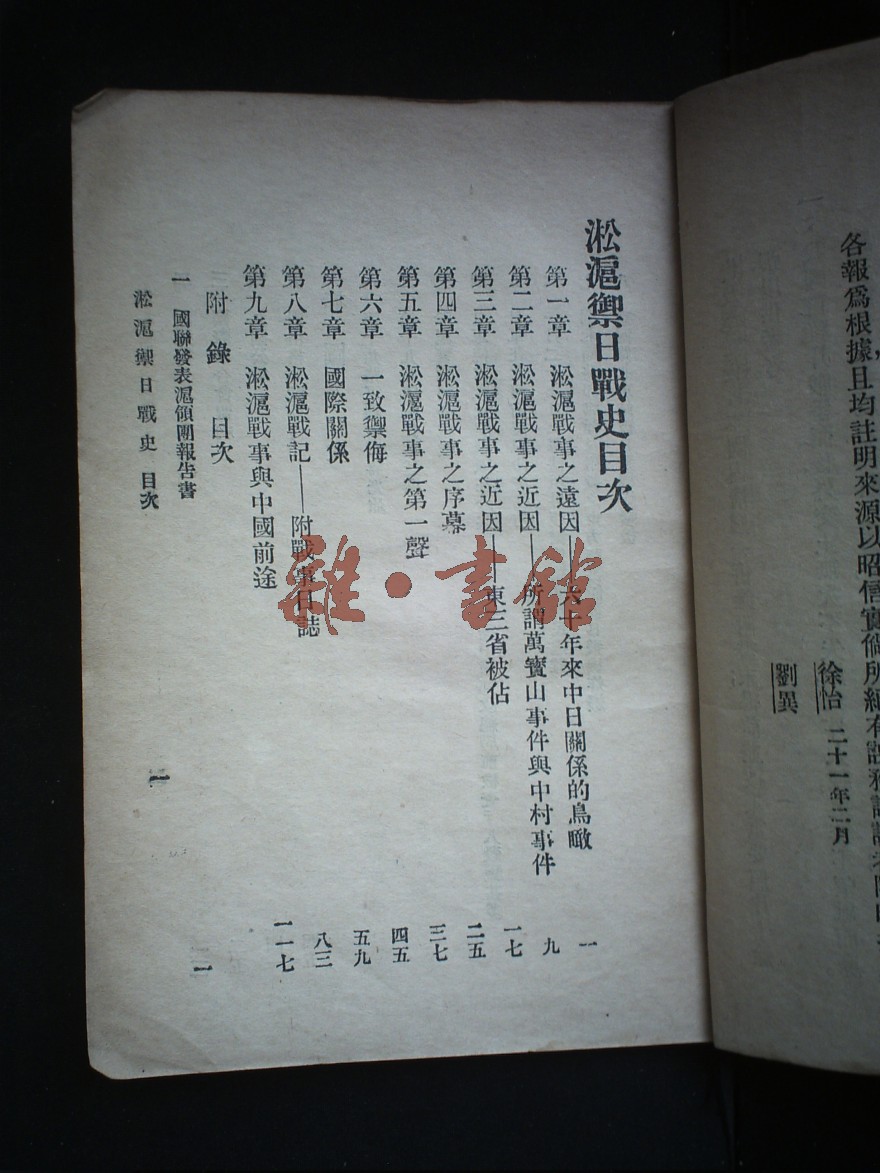 各報爲根據,且均註明來源以昭信實倘所編有誤
徐怡 二十一年二月
劉異
淞滬禦日戰史目次
第一章 淞滬戰事之遠因——六十年來中日關係的鳥瞰 一
第二章 淞滬戰事之近因——所謂萬寶山事件與中村事件 九
第三章 淞滬戰事之近因——東三省被佔 一七
第四章 淞滬戰事之序幕 二五
第五章 淞滬戰事之第一聲 三七
第六章 一致禦侮 四五
第七章 國際關係 五九
第八章 淞滬戰記——附戰事日誌 八三
第九章 淞滬戰事與中國前途 一一七
附錄目次
一 國聯發表滬領團報告書 一
淞滬禦日戰史 目次 一
雜·書館